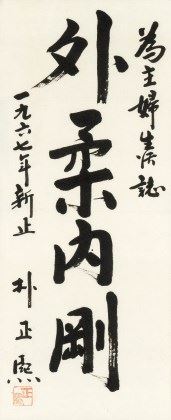 為主婦生活誌
外柔內剛
一九六七年新正
朴正熙